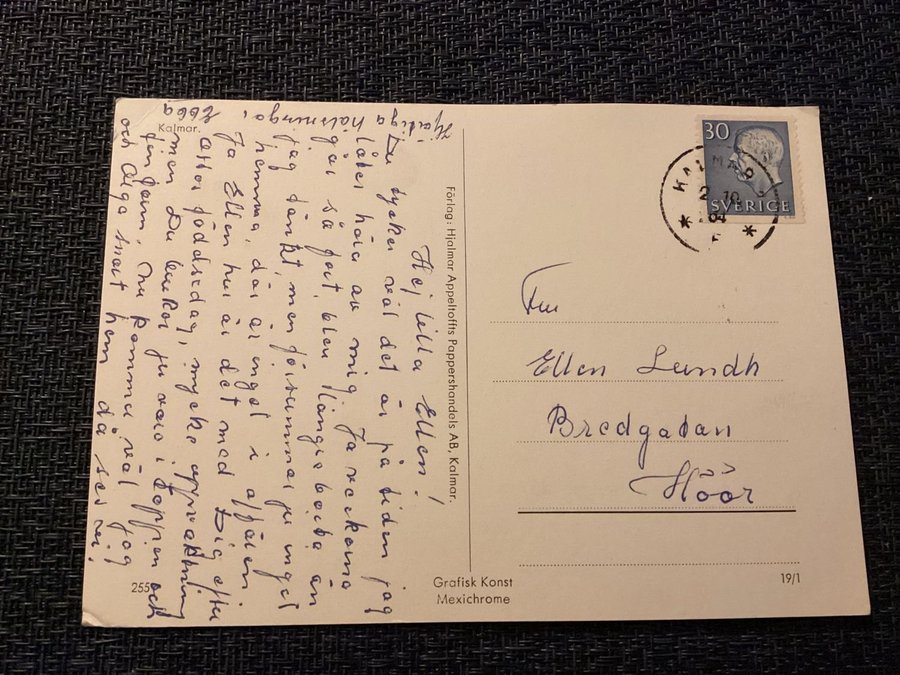 Kalmar.
Hej lilla Ellen!
Du tycker väl det är på tiden jag
låter höra av mig. Ja veckorna
går så fort, blev längre borta än
jag tänkt, men försummar ju inget
hemma, där är inget i affären
Ja Ellen hur är det med Dig efter
attio födelsedag, mycke uppvaktning
men Du brukar ju vara i toppen och
fin form, nu kommer väl jag
och Alga snart hem då ses vi!
Hjärtliga hälsningar
Ebba
255
Förlag: Hjalmar Appeltoffts Pappershandels AB, Kalmar.
Grafisk Konst
Mexichrome
30
SVERIGE
KALMAR
2 10
Fru
Ellen Lundh
Bredgatan
Höör
19/1